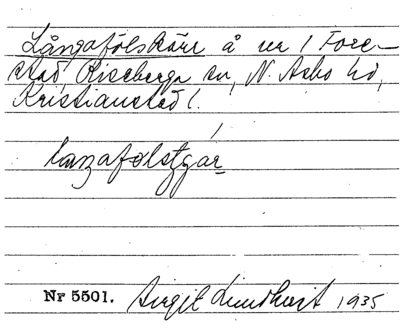 Långafölskärr å nr 1 Fore-
stad, Riseberga sn, N. Åsbo hd,
Kristianstad l.
Nr 5501. Birgit Lundkvist 1935